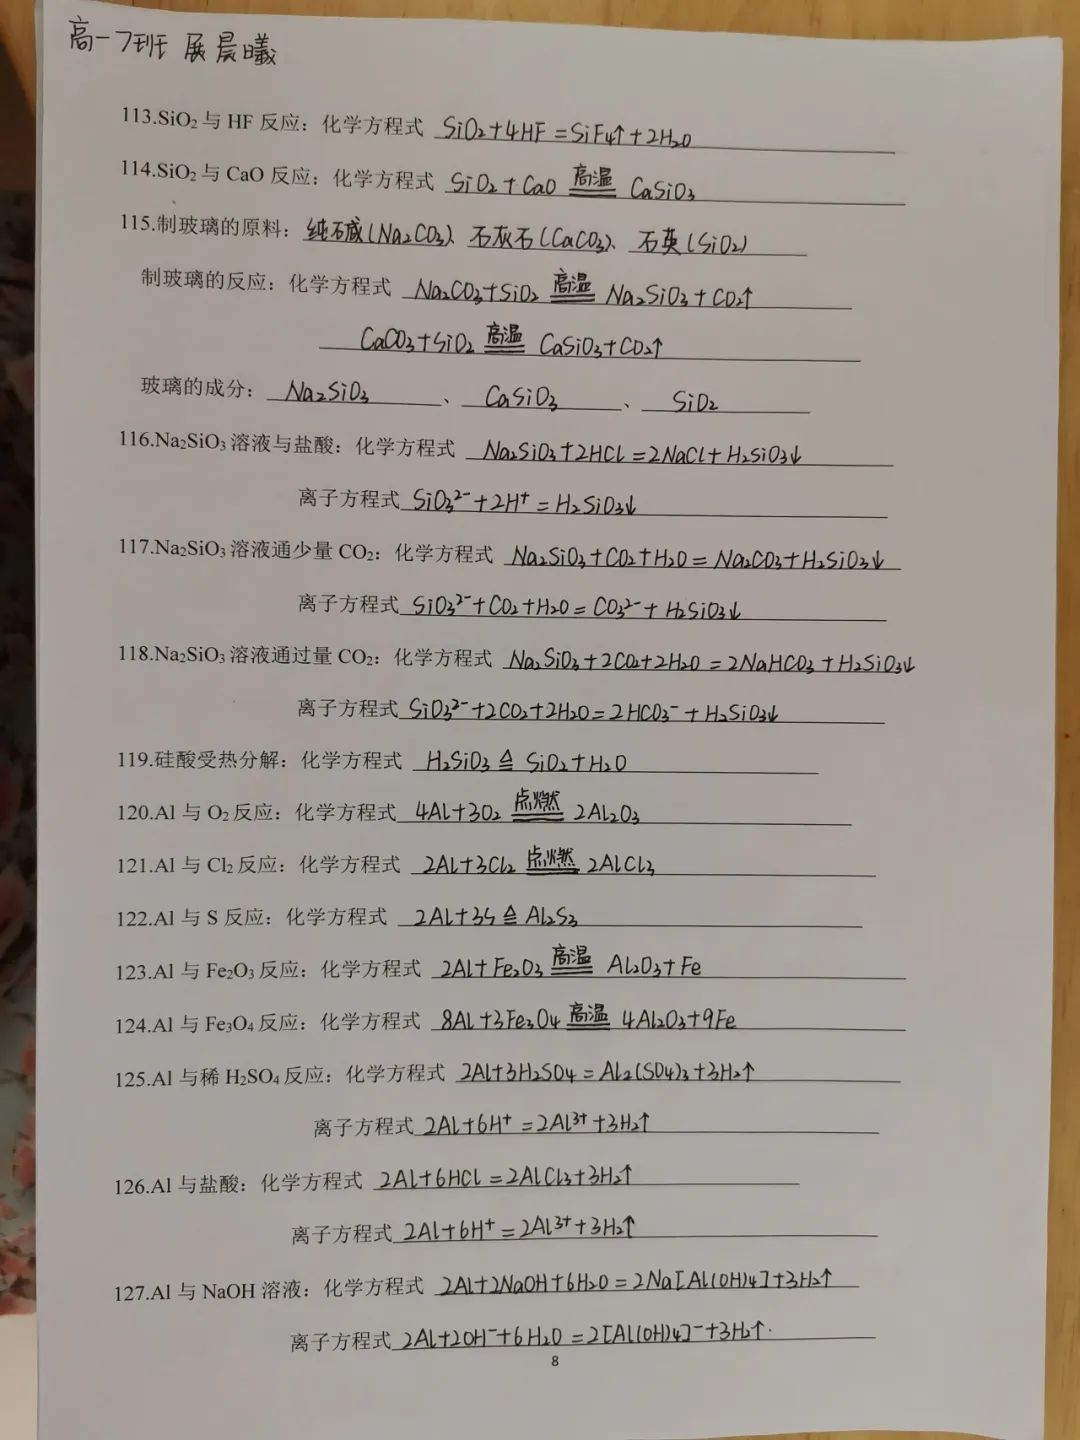 高一7班 展晨曦
113.SiO₂与 HF 反应：化学方程式 SiO₂+4HF=SiF₄↑+2H₂O
114.SiO₂与 CaO 反应：化学方程式 SiO₂+CaO 高温 CaSiO₃
115.制玻璃的原料：纯碱(Na₂CO₃)、石灰石(CaCO₃)、石英(SiO₂)
制玻璃的反应：化学方程式 Na₂CO₃+SiO₂ 高温 Na₂SiO₃+CO₂↑
CaCO₃+SiO₂ 高温 CaSiO₃+CO₂↑
玻璃的成分：Na₂SiO₃、CaSiO₃、SiO₂
116.Na₂SiO₃溶液与盐酸：化学方程式 Na₂SiO₃+2HCl=2NaCl+H₂SiO₃↓
离子方程式 SiO₃²⁻+2H⁺=H₂SiO₃↓
117.Na₂SiO₃溶液通少量 CO₂：化学方程式 Na₂SiO₃+CO₂+H₂O=Na₂CO₃+H₂SiO₃↓
离子方程式 SiO₃²⁻+CO₂+H₂O=CO₃²⁻+H₂SiO₃↓
118.Na₂SiO₃溶液通过量 CO₂：化学方程式 Na₂SiO₃+2CO₂+2H₂O=2NaHCO₃+H₂SiO₃↓
离子方程式 SiO₃²⁻+2CO₂+2H₂O=2HCO₃⁻+H₂SiO₃↓
119.硅酸受热分解：化学方程式 H₂SiO₃ ≙ SiO₂+H₂O
120.Al 与 O₂反应：化学方程式 4Al+3O₂ 点燃 2Al₂O₃
121.Al 与 Cl₂反应：化学方程式 2Al+3Cl₂ 点燃 2AlCl₃
122.Al 与 S 反应：化学方程式 2Al+3S ≙ Al₂S₃
123.Al 与 Fe₂O₃反应：化学方程式 2Al+Fe₂O₃ 高温 Al₂O₃+Fe
124.Al 与 Fe₃O₄反应：化学方程式 8Al+3Fe₃O₄ 高温 4Al₂O₃+9Fe
125.Al 与稀 H₂SO₄反应：化学方程式 2Al+3H₂SO₄=Al₂(SO₄)₃+3H₂↑
离子方程式 2Al+6H⁺=2Al³⁺+3H₂↑
126.Al 与盐酸：化学方程式 2Al+6HCl=2AlCl₃+3H₂↑
离子方程式 2Al+6H⁺=2Al³⁺+3H₂↑
127.Al 与 NaOH 溶液：化学方程式 2Al+2NaOH+6H₂O=2Na[Al(OH)₄]+3H₂↑
离子方程式 2Al+2OH⁻+6H₂O=2[Al(OH)₄]⁻+3H₂↑.
8